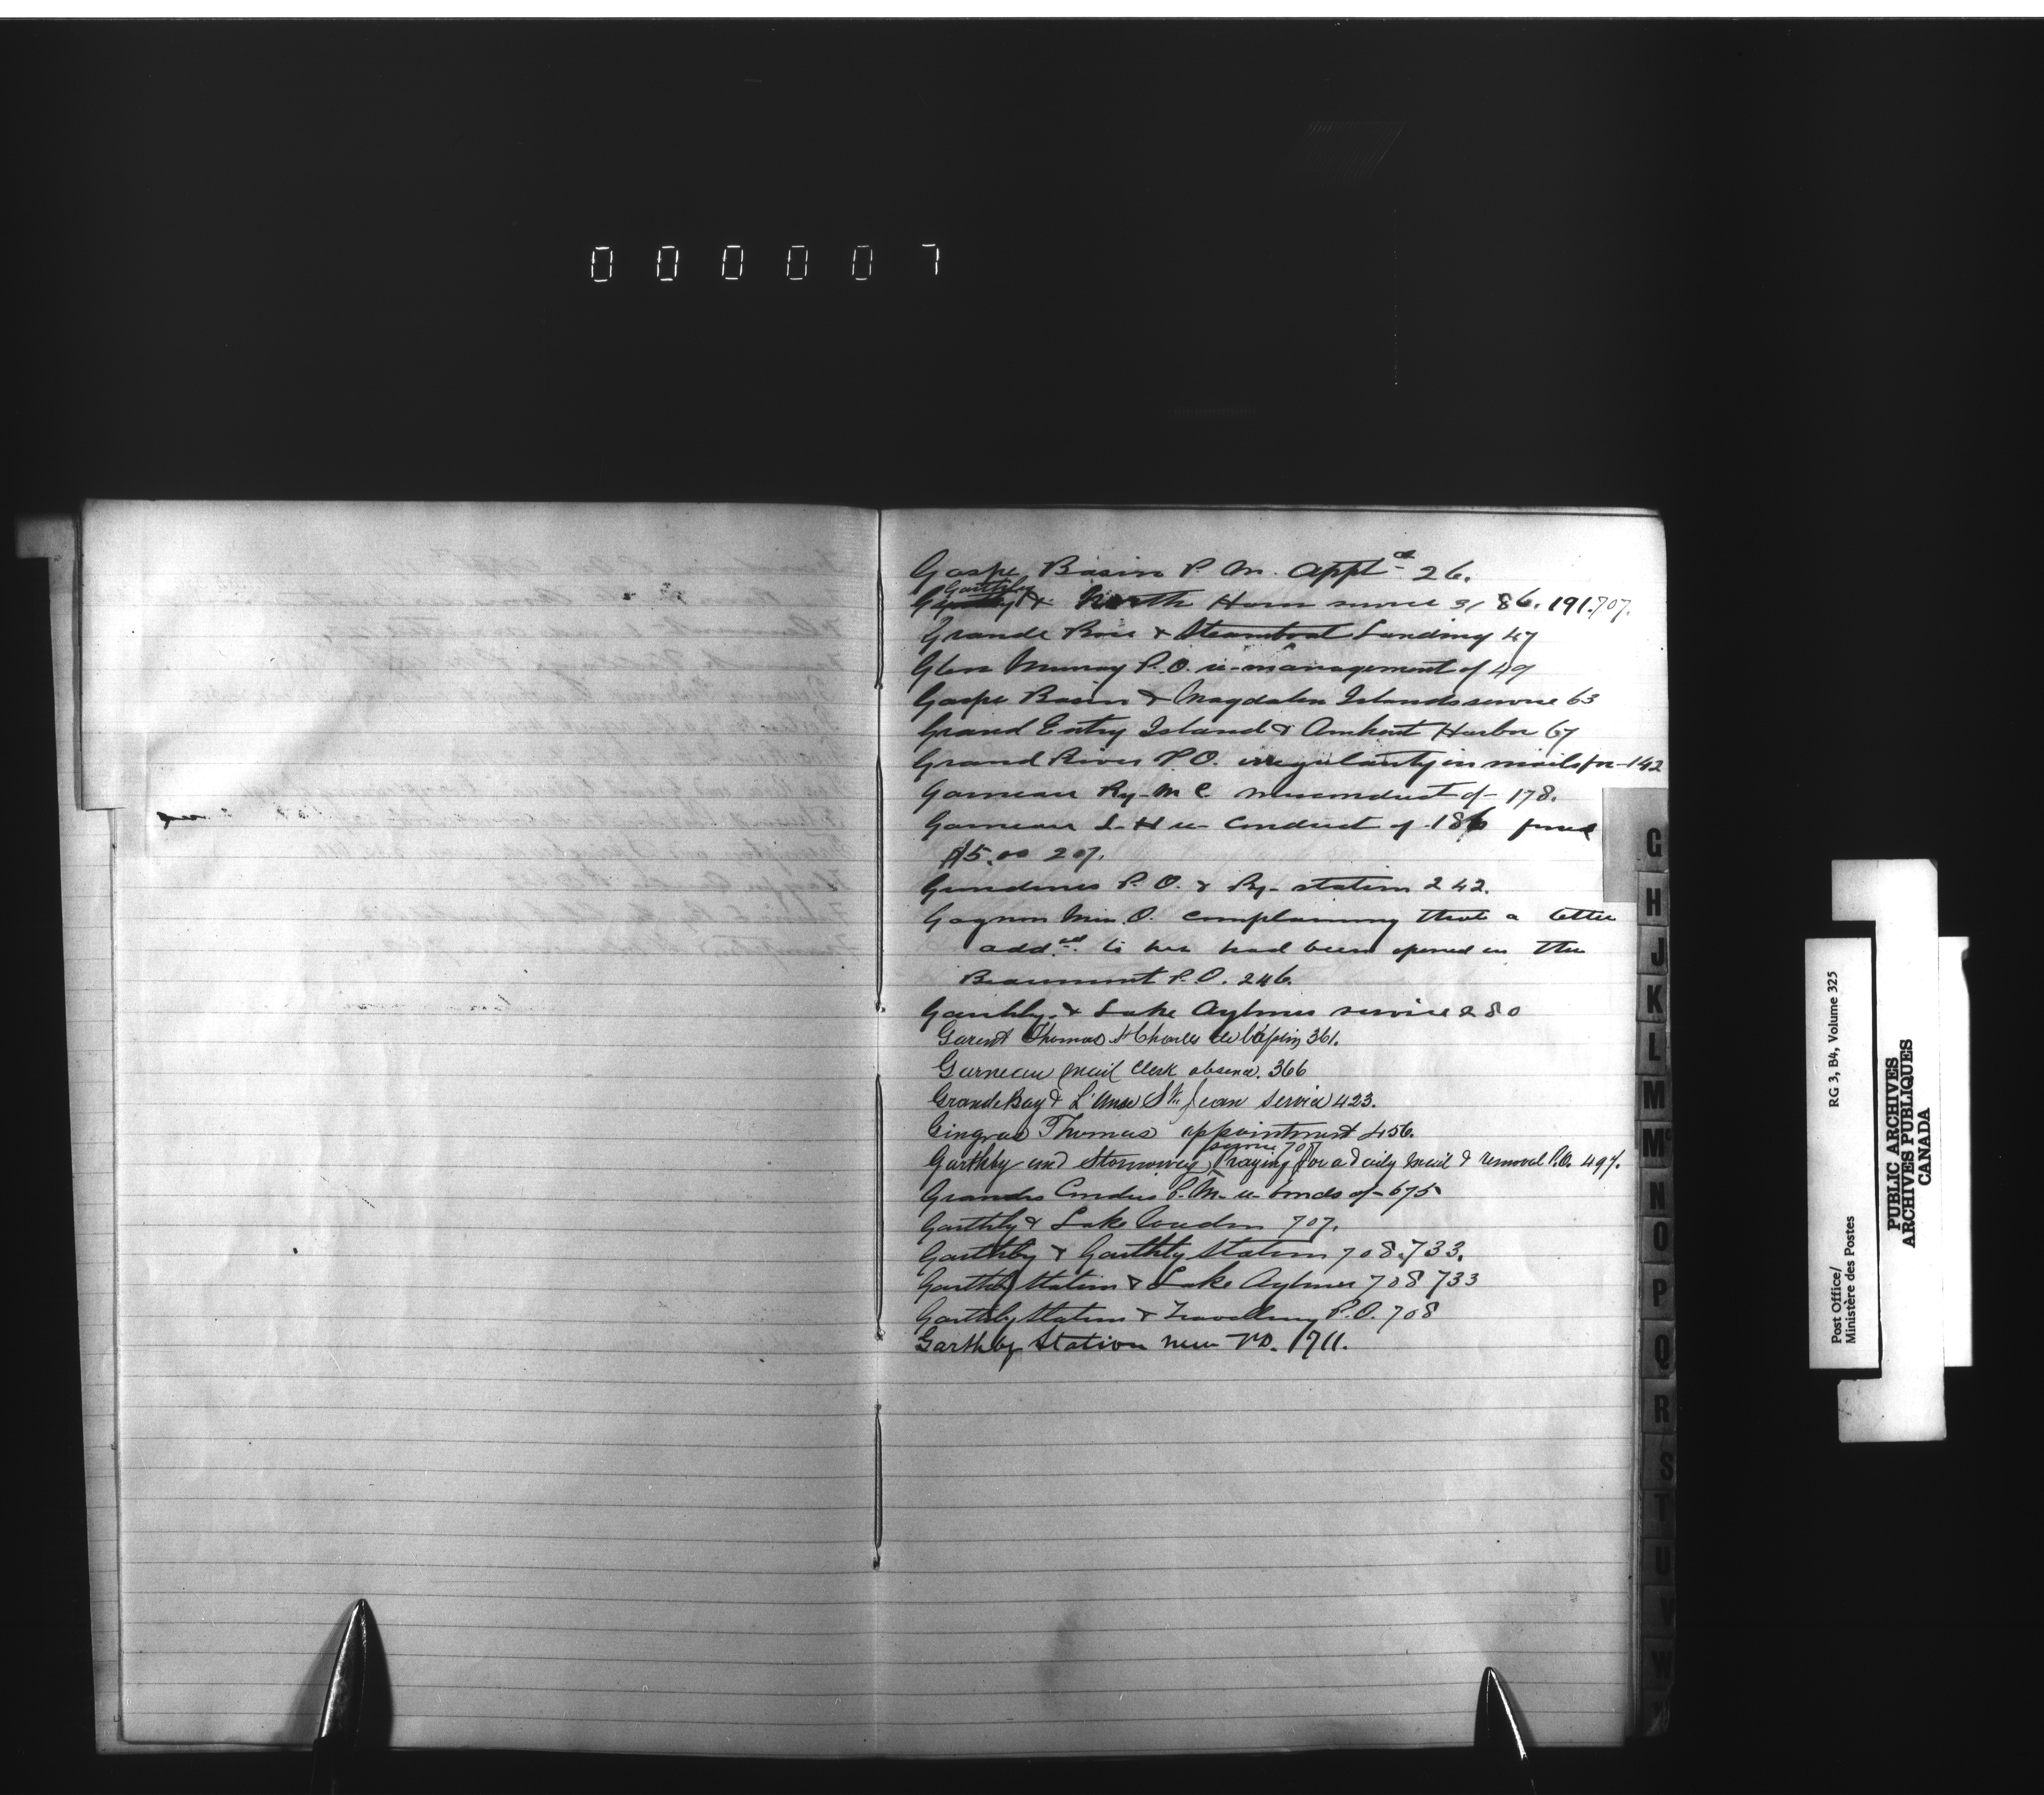 000007
Gaspe Basin P. M. appt 26.
Garthby
& North Ham service 31 86. 191. 707.
Grande Baie & Steamboat Landing 47
Glen Murray P.O. re management of 49
Gaspe Basin & Magdalen Islands service 63
Grand Entry Island & Amherst Harbor 67
Grand River P.O. irregularity in mails for 142
Garneau Ry. M. C. misconduct of 178.
Garneau L. H re conduct of 186 fined
$5.00 207.
P.O. & Ry. station 242.
Gagnon Miss. O. complaining that a letter
add.ed to her had been opened in the
Beaumont P.O. 246.
Garthby & Lake Aylmer service 280
Garent Thomas St Charles 361.
Garneau mail clerk absence. 366
Grande Bay & L'Anse St. Jean service 423.
Gingras Thomas appointment 456.
service 707
Garthby and Stornoway Praying for a daily mail & removal P.O. 497.
Grandes Coudes P.M. re bonds of 675
Garthby & Lake 707.
Garthby & Garthby Station 708. 733.
Garthby Station & Lake Aylmer 708 733
Garthby Station & Travelling P.O. 708
Garthby Station new P.O. 711.
G
H
J
K
L
M
Mc
N
O
P
Q
R
S
T
U
V
W
Post Office/ RG 3, B4, Volume 325
Ministère des Postes
PUBLIC ARCHIVES
ARCHIVES PUBLIQUES
CANADA